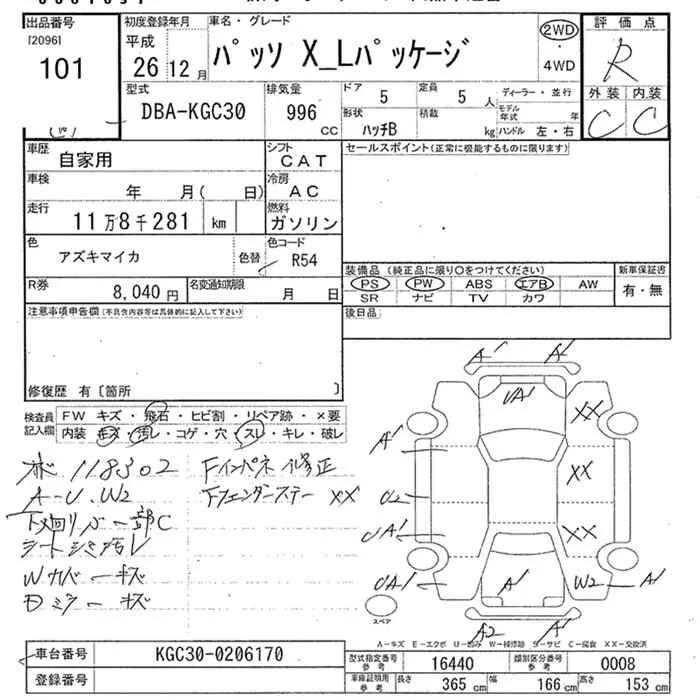 出品番号
[2096]
101
初度登録年月
平成
26 12 月
車名・グレード
パッソ X_Lパッケージ
2WD
・
4WD
評価点
R
外装 内装
C C
型式
DBA-KGC30
排気量
996
CC
ドア 5
定員 5 人
ディーラー・並行
モデル年式 年
形状
ハッチB
積載
kg
ハンドル 左・右
車歴
自家用
シフト
CAT
車検
年 月( 日)
冷房
AC
走行
11万8千281 km
燃料
ガソリン
色
アズキマイカ
色替
色コード
R54
R券
8,040 円
名変通知期限
月 日
セールスポイント(正常に機能するものに限ります)
装備品 (純正品に限り○をつけてください)
PS PW ABS エアB AW
SR ナビ TV カワ
新車保証書
有・無
後日品
注意事項申告欄(不具合内容等は具体的に記入して下さい)
修復歴 有〔箇所 〕
検査員記入欄
FW キズ・飛石・ヒビ割・リペア跡・×要
内装 キズ・汚レ・コゲ・穴・スレ・キレ・破レ
118302
Fインパネ修正
A-U.W2
Fフェンダーステー XX
下廻りバー部C
シートシミ汚レ
Wカバーキズ
Dミラーキズ
A1 A1
UA1
XX
A1
XX
U2
UA1
XX
UA1
A1
W2
A1
A2
A1
スペア
A-キズ E-エクボ U-凹み W-補修跡 S-サビ C-腐食 XX-交換済
車台番号
KGC30-0206170
登録番号
型式指定番号
参考
16440
類別区分番号
参考
0008
車庫証明用
参考
長さ 365 cm
幅 166 cm
高さ 153 cm